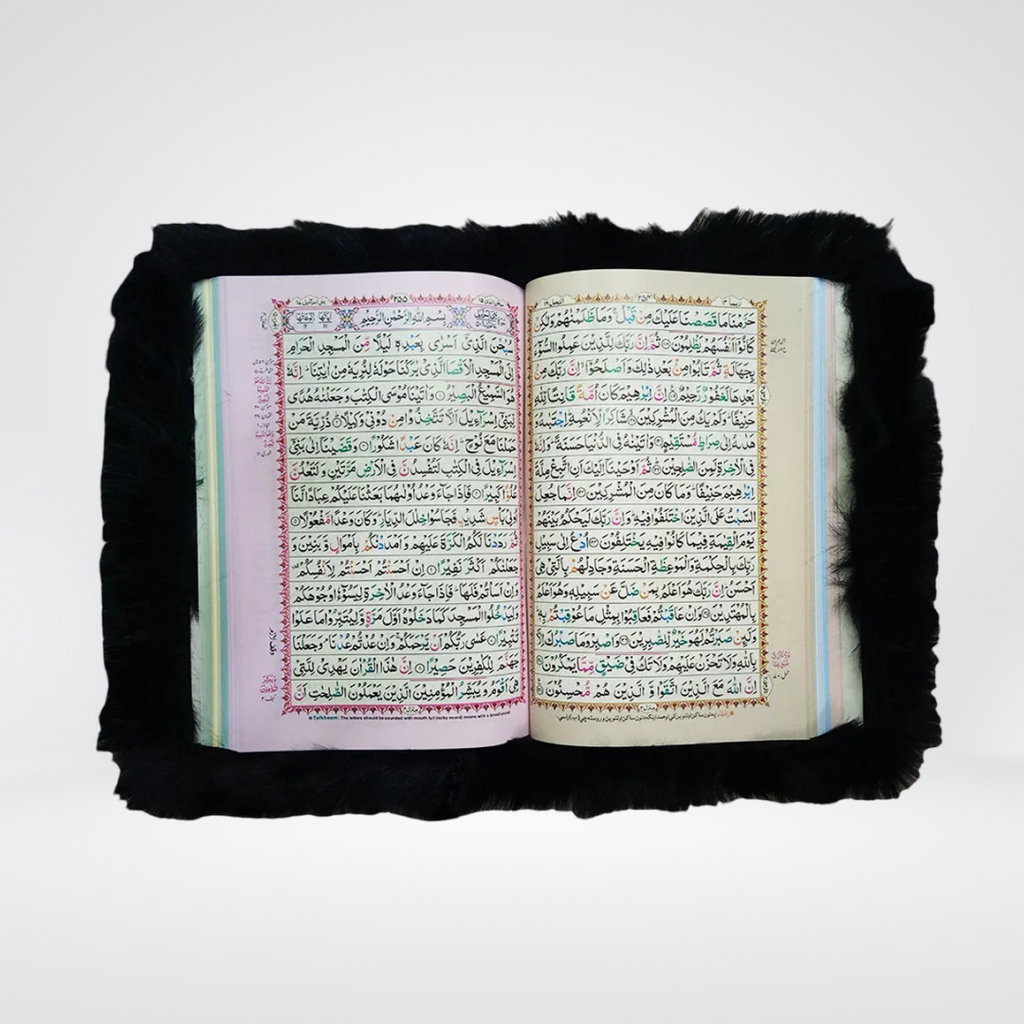 ربما ١٤
النحل ١٦
حَرَّمْنَا مَا قَصَصْنَا عَلَيْكَ مِنْ قَبْلُ ۚ وَمَا ظَلَمْنٰهُمْ وَلٰكِنْ
كَانُوْٓا اَنْفُسَهُمْ يَظْلِمُوْنَ ۝ ثُمَّ اِنَّ رَبَّكَ لِلَّذِيْنَ عَمِلُوا السُّوْٓءَ
بِجَهَالَةٍ ثُمَّ تَابُوْا مِنْۢ بَعْدِ ذٰلِكَ وَاَصْلَحُوْٓا ۙ اِنَّ رَبَّكَ مِنْۢ
بَعْدِهَا لَغَفُوْرٌ رَّحِيْمٌ ۝ اِنَّ اِبْرٰهِيْمَ كَانَ اُمَّةً قَانِتًا لِّلّٰهِ
حَنِيْفًا ؕ وَلَمْ يَكُ مِنَ الْمُشْرِكِيْنَ ۝ شَاكِرًا لِّاَنْعُمِهٖ ؕ اِجْتَبٰىهُ وَ
هَدٰىهُ اِلٰى صِرَاطٍ مُّسْتَقِيْمٍ ۝ وَاٰتَيْنٰهُ فِى الدُّنْيَا حَسَنَةً ؕ وَاِنَّهٗ
فِى الْاٰخِرَةِ لَمِنَ الصّٰلِحِيْنَ ۝ ثُمَّ اَوْحَيْنَآ اِلَيْكَ اَنِ اتَّبِعْ مِلَّةَ
اِبْرٰهِيْمَ حَنِيْفًا ؕ وَمَا كَانَ مِنَ الْمُشْرِكِيْنَ ۝ اِنَّمَا جُعِلَ
السَّبْتُ عَلَى الَّذِيْنَ اخْتَلَفُوْا فِيْهِ ؕ وَاِنَّ رَبَّكَ لَيَحْكُمُ بَيْنَهُمْ
يَوْمَ الْقِيٰمَةِ فِيْمَا كَانُوْا فِيْهِ يَخْتَلِفُوْنَ ۝ اُدْعُ اِلٰى سَبِيْلِ
رَبِّكَ بِالْحِكْمَةِ وَالْمَوْعِظَةِ الْحَسَنَةِ وَجَادِلْهُمْ بِالَّتِىْ هِىَ
اَحْسَنُ ؕ اِنَّ رَبَّكَ هُوَ اَعْلَمُ بِمَنْ ضَلَّ عَنْ سَبِيْلِهٖ وَهُوَ اَعْلَمُ
بِالْمُهْتَدِيْنَ ۝ وَاِنْ عَاقَبْتُمْ فَعَاقِبُوْا بِمِثْلِ مَا عُوْقِبْتُمْ بِهٖ ؕ
وَلَئِنْ صَبَرْتُمْ لَهُوَ خَيْرٌ لِّلصّٰبِرِيْنَ ۝ وَاصْبِرْ وَمَا صَبْرُكَ اِلَّا
بِاللّٰهِ وَلَا تَحْزَنْ عَلَيْهِمْ وَلَا تَكُ فِىْ ضَيْقٍ مِّمَّا يَمْكُرُوْنَ ۝
اِنَّ اللّٰهَ مَعَ الَّذِيْنَ اتَّقَوْا وَّ الَّذِيْنَ هُمْ مُّحْسِنُوْنَ ۝
سبحن الذى ١٥
٢٥٥
بنى اسرآءيل ١٧
بِسْمِ اللّٰهِ الرَّحْمٰنِ الرَّحِيْمِ
سُبْحٰنَ الَّذِىْٓ اَسْرٰى بِعَبْدِهٖ لَيْلًا مِّنَ الْمَسْجِدِ الْحَرَامِ
اِلَى الْمَسْجِدِ الْاَقْصَا الَّذِىْ بٰرَكْنَا حَوْلَهٗ لِنُرِيَهٗ مِنْ اٰيٰتِنَا ؕ اِنَّهٗ
هُوَ السَّمِيْعُ الْبَصِيْرُ ۝ وَاٰتَيْنَا مُوْسَى الْكِتٰبَ وَجَعَلْنٰهُ هُدًى
لِّبَنِىْٓ اِسْرَآءِيْلَ اَلَّا تَتَّخِذُوْا مِنْ دُوْنِىْ وَكِيْلًا ۝ ذُرِّيَّةَ مَنْ
حَمَلْنَا مَعَ نُوْحٍ ؕ اِنَّهٗ كَانَ عَبْدًا شَكُوْرًا ۝ وَقَضَيْنَآ اِلٰى بَنِىْٓ
اِسْرَآءِيْلَ فِى الْكِتٰبِ لَتُفْسِدُنَّ فِى الْاَرْضِ مَرَّتَيْنِ وَلَتَعْلُنَّ
عُلُوًّا كَبِيْرًا ۝ فَاِذَا جَآءَ وَعْدُ اُوْلٰىهُمَا بَعَثْنَا عَلَيْكُمْ عِبَادًا لَّنَآ
اُولِىْ بَاْسٍ شَدِيْدٍ فَجَاسُوْا خِلٰلَ الدِّيَارِ ؕ وَكَانَ وَعْدًا مَّفْعُوْلًا ۝
ثُمَّ رَدَدْنَا لَكُمُ الْكَرَّةَ عَلَيْهِمْ وَاَمْدَدْنٰكُمْ بِاَمْوَالٍ وَّبَنِيْنَ وَ
جَعَلْنٰكُمْ اَكْثَرَ نَفِيْرًا ۝ اِنْ اَحْسَنْتُمْ اَحْسَنْتُمْ لِاَنْفُسِكُمْ
وَاِنْ اَسَاْتُمْ فَلَهَا ؕ فَاِذَا جَآءَ وَعْدُ الْاٰخِرَةِ لِيَسُوْٓءٗا وُجُوْهَكُمْ
وَلِيَدْخُلُوا الْمَسْجِدَ كَمَا دَخَلُوْهُ اَوَّلَ مَرَّةٍ وَّلِيُتَبِّرُوْا مَا عَلَوْا
تَتْبِيْرًا ۝ عَسٰى رَبُّكُمْ اَنْ يَّرْحَمَكُمْ ۚ وَاِنْ عُدْتُّمْ عُدْنَا ۘ وَجَعَلْنَا
جَهَنَّمَ لِلْكٰفِرِيْنَ حَصِيْرًا ۝ اِنَّ هٰذَا الْقُرْاٰنَ يَهْدِىْ لِلَّتِىْ
هِىَ اَقْوَمُ وَيُبَشِّرُ الْمُؤْمِنِيْنَ الَّذِيْنَ يَعْمَلُوْنَ الصّٰلِحٰتِ اَنَّ
Tafkheem: The letters should be sounded with mouth full